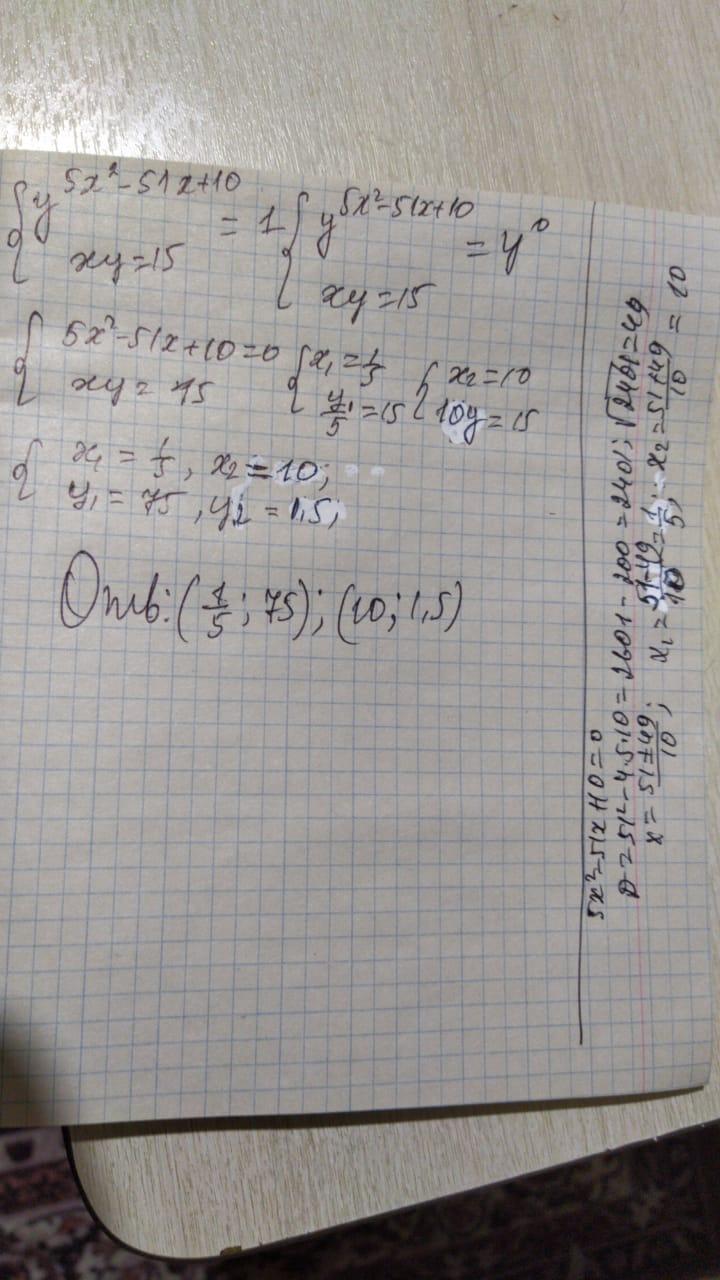 { y^{5x²-51x+10} = 1 { y^{5x²-51x+10} = y⁰
xy=15 xy=15
{ 5x²-51x+10=0 { x₁=1/5 { x₂=10
xy=15 y/5=15 10y=15
{ x₁=1/5, x₂=10;
y₁=75, y₂=1,5;
Отв: (1/5; 75); (10; 1,5)
5x²-51x+10=0
D=51²-4·5·10=2601-200=2401; √2401=49
x=51±49/10; x₁=51-49/10=1/5; x₂=51+49/10=10